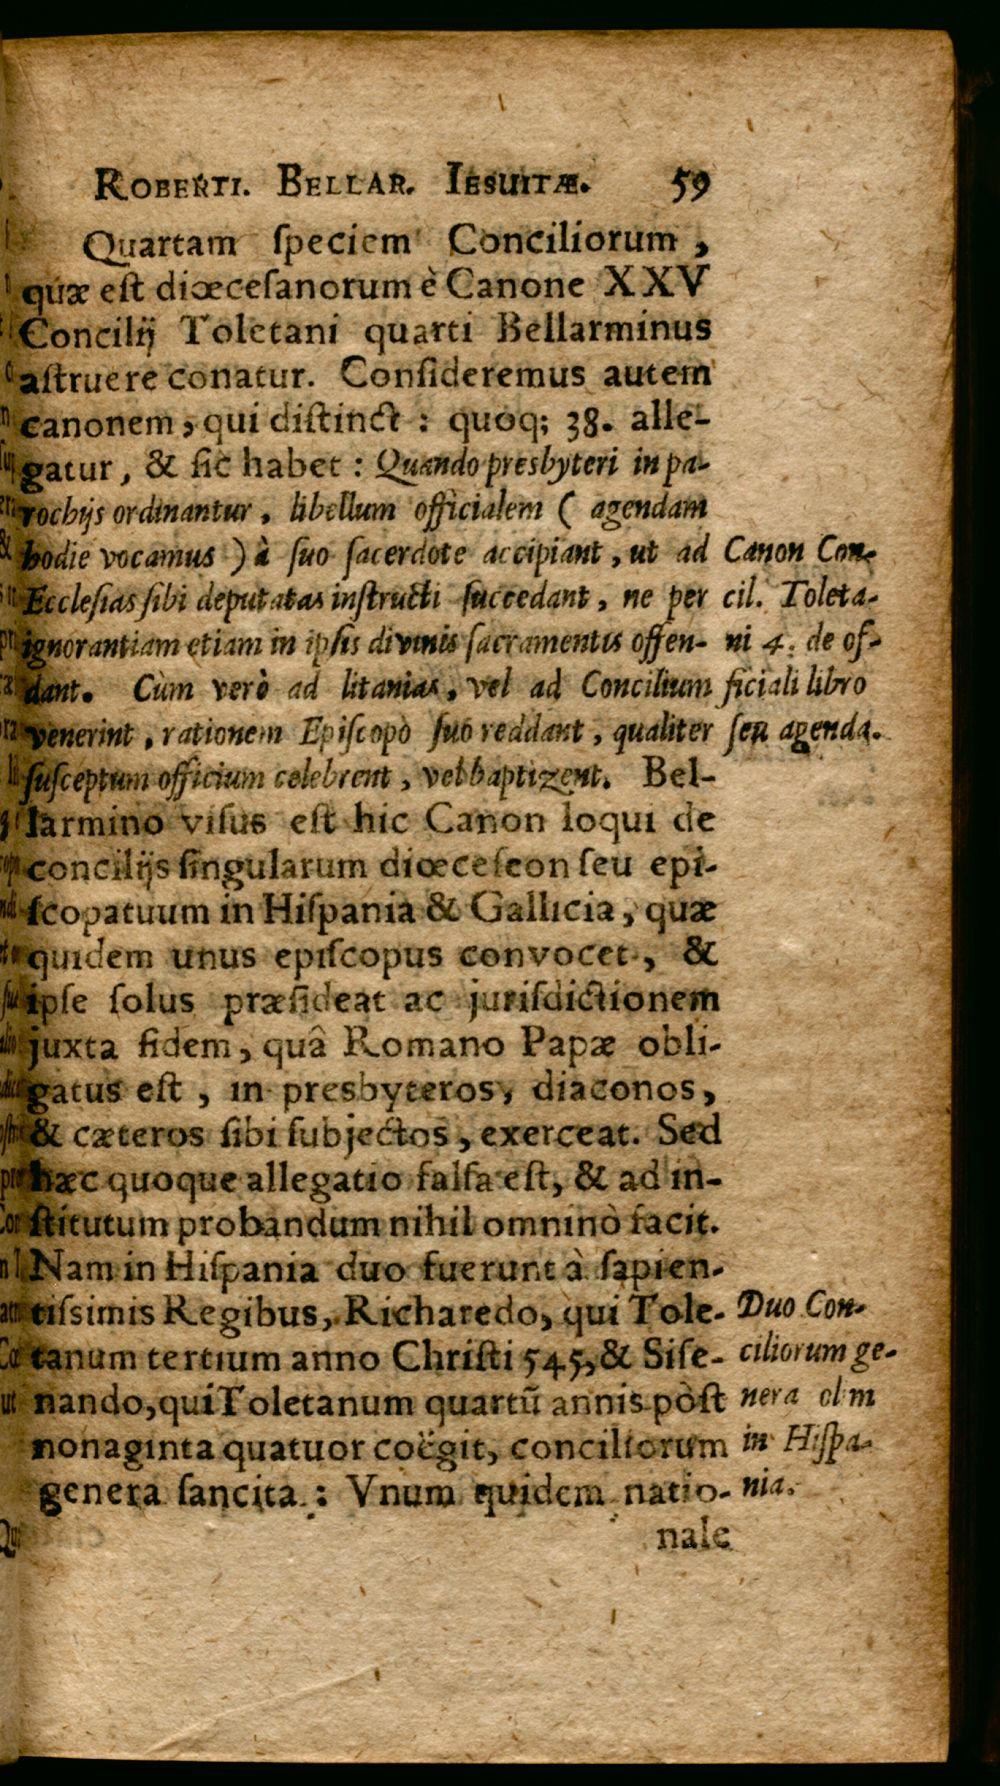 ROBERTI. BELLAR. IESUITÆ. 59
Quartam ſpeciem Conciliorum,
quæ eſt diœceſanorum è Canone XXV
Concilij Toletani quarti Bellarminus
aſtruere conatur. Conſideremus autem
canonem, qui diſtinct : quoq; 38. alle-
gatur, & ſic habet : Quando presbyteri in pa-
rochijs ordinantur, libellum officialem ( agendam
hodie vocamus ) à ſuo ſacerdote accipiant, ut ad
Eccleſias ſibi deputatas inſtructi ſuccedant, ne per
ignorantiam etiam in ipſis divinis ſacramentis offen-
dant. Cùm verò ad litanias, vel ad Concilium
venerint, rationem Epiſcopo ſuo reddant, qualiter
ſuſceptum officium celebrent, vel baptizent. Bel-
larmino viſus eſt hic Canon loqui de
concilijs ſingularum diœceſeon ſeu epi-
ſcopatuum in Hiſpania & Gallicia, quæ
quidem unus epiſcopus convocet, &
ipſe ſolus præſideat ac jurisdictionem
juxta fidem, quâ Romano Papæ obli-
gatus eſt, in presbyteros, diaconos,
& cæteros ſibi ſubjectos, exerceat. Sed
hæc quoque allegatio falſa eſt, & ad in-
ſtitutum probandum nihil omninò facit.
Nam in Hiſpania duo fuerunt à ſapien-
tiſsimis Regibus, Richaredo, qui Tole-
tanum tertium anno Chriſti 545, & Siſe-
nando, qui Toletanum quartũ annis pòſt
nonaginta quatuor coëgit, conciliorum
genera ſancita : Vnum quidem natio-
nale
Canon Con-
cil. Toleta-
ni 4. de of-
ficiali libro
ſeu agenda.
Duo Con-
ciliorum ge-
nera olim
in Hiſpa-
nia.